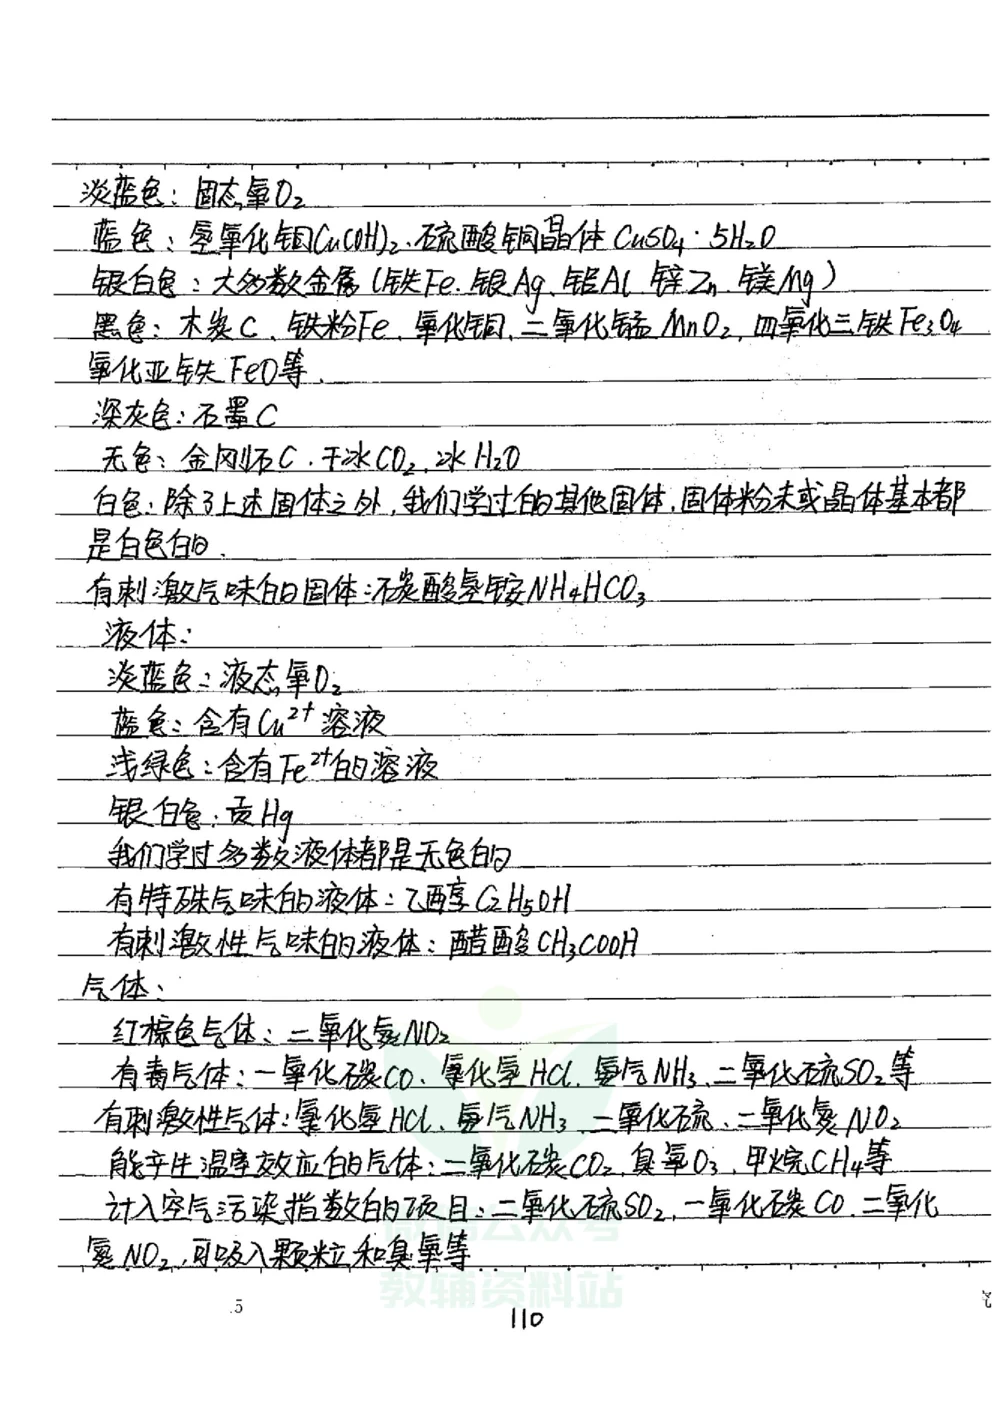 淡蓝色：固态氧O₂
蓝色：氢氧化铜Cu(OH)₂、硫酸铜晶体 CuSO₄·5H₂O
银白色：大多数金属（铁Fe、银Ag、铝Al、锌Zn、镁Mg）
黑色：木炭C、铁粉Fe、氧化铜、二氧化锰MnO₂、四氧化三铁Fe₃O₄
氧化亚铁FeO等.
深灰色：石墨C
无色：金刚石C、干冰CO₂、冰H₂O
白色：除了上述固体之外，我们学过的其他固体、固体粉末或晶体基本都
是白色的.
有刺激气味的固体：碳酸氢铵NH₄HCO₃
液体：
淡蓝色：液态氧O₂
蓝色：含有Cu²⁺溶液
浅绿色：含有Fe²⁺的溶液
银白色：汞Hg
我们学过多数液体都是无色的
有特殊气味的液体：乙醇C₂H₅OH
有刺激性气味的液体：醋酸CH₃COOH
气体：
红棕色气体：二氧化氮NO₂
有毒气体：一氧化碳CO、氯化氢HCl、氨气NH₃、二氧化硫SO₂等
有刺激性气体：氯化氢HCl、氨气NH₃、二氧化硫、二氧化氮NO₂
能产生温室效应的气体：二氧化碳CO₂、臭氧O₃、甲烷CH₄等
计入空气污染指数的项目：二氧化硫SO₂、一氧化碳CO、二氧化
氮NO₂、可吸入颗粒和臭氧等
微信公众号
教辅资料站
5
110